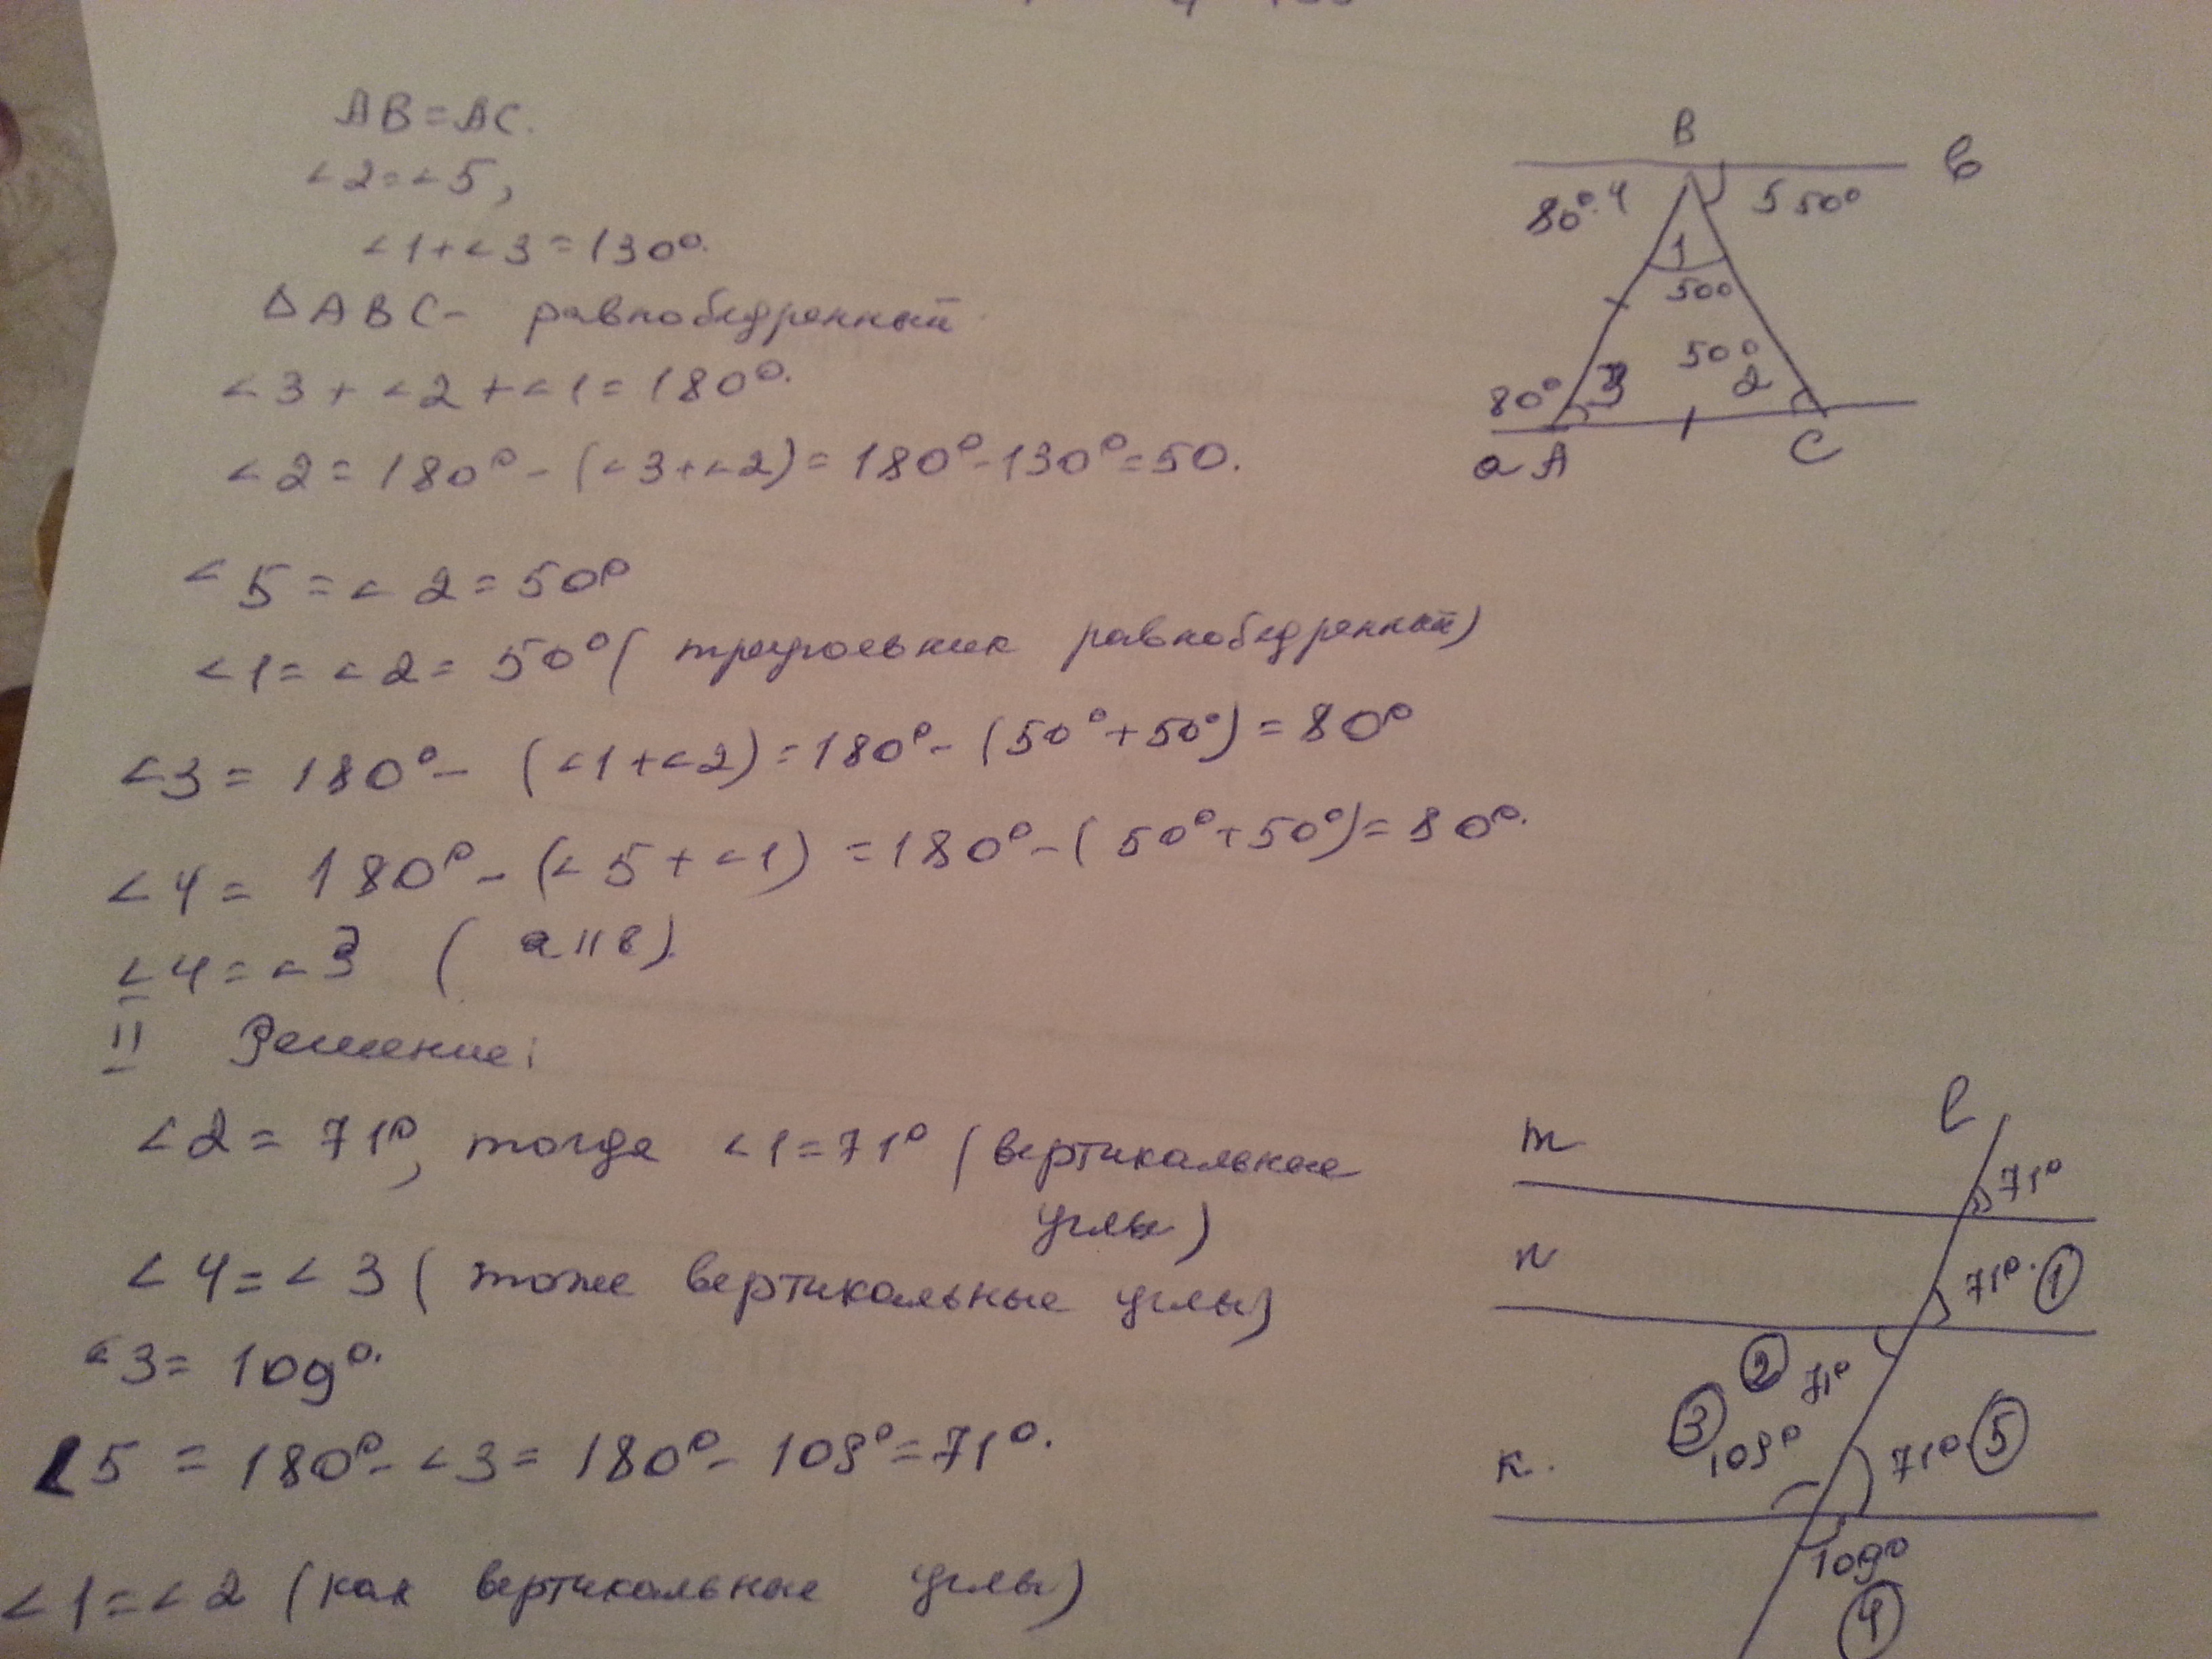 AB = AC.
∠2 = ∠5,
∠1 + ∠3 = 130°.
ΔABC - равнобедренный
∠3 + ∠2 + ∠1 = 180°.
∠2 = 180° - (∠3 + ∠2) = 180° - 130° = 50.
∠5 = ∠2 = 50°
∠1 = ∠2 = 50° ( треугольник равнобедренный)
∠3 = 180° - (∠1 + ∠2) = 180° - (50° + 50°) = 80°
∠4 = 180° - (∠5 + ∠1) = 180° - (50° + 50°) = 80°.
∠4 = ∠3 ( a || в ).
II Решение:
∠2 = 71°, тогда ∠1 = 71° ( вертикальные
углы )
∠4 = ∠3 ( тоже вертикальные углы)
∠3 = 109°.
∠5 = 180° - ∠3 = 180° - 109° = 71°.
∠1 = ∠2 ( как вертикальные углы )
B
в
80° 4
5 50°
1
50°
50°
80° 3
2
a A
C
ℓ
m
71°
n
71° 1
2 71°
3
109°
71° 5
к.
109°
4